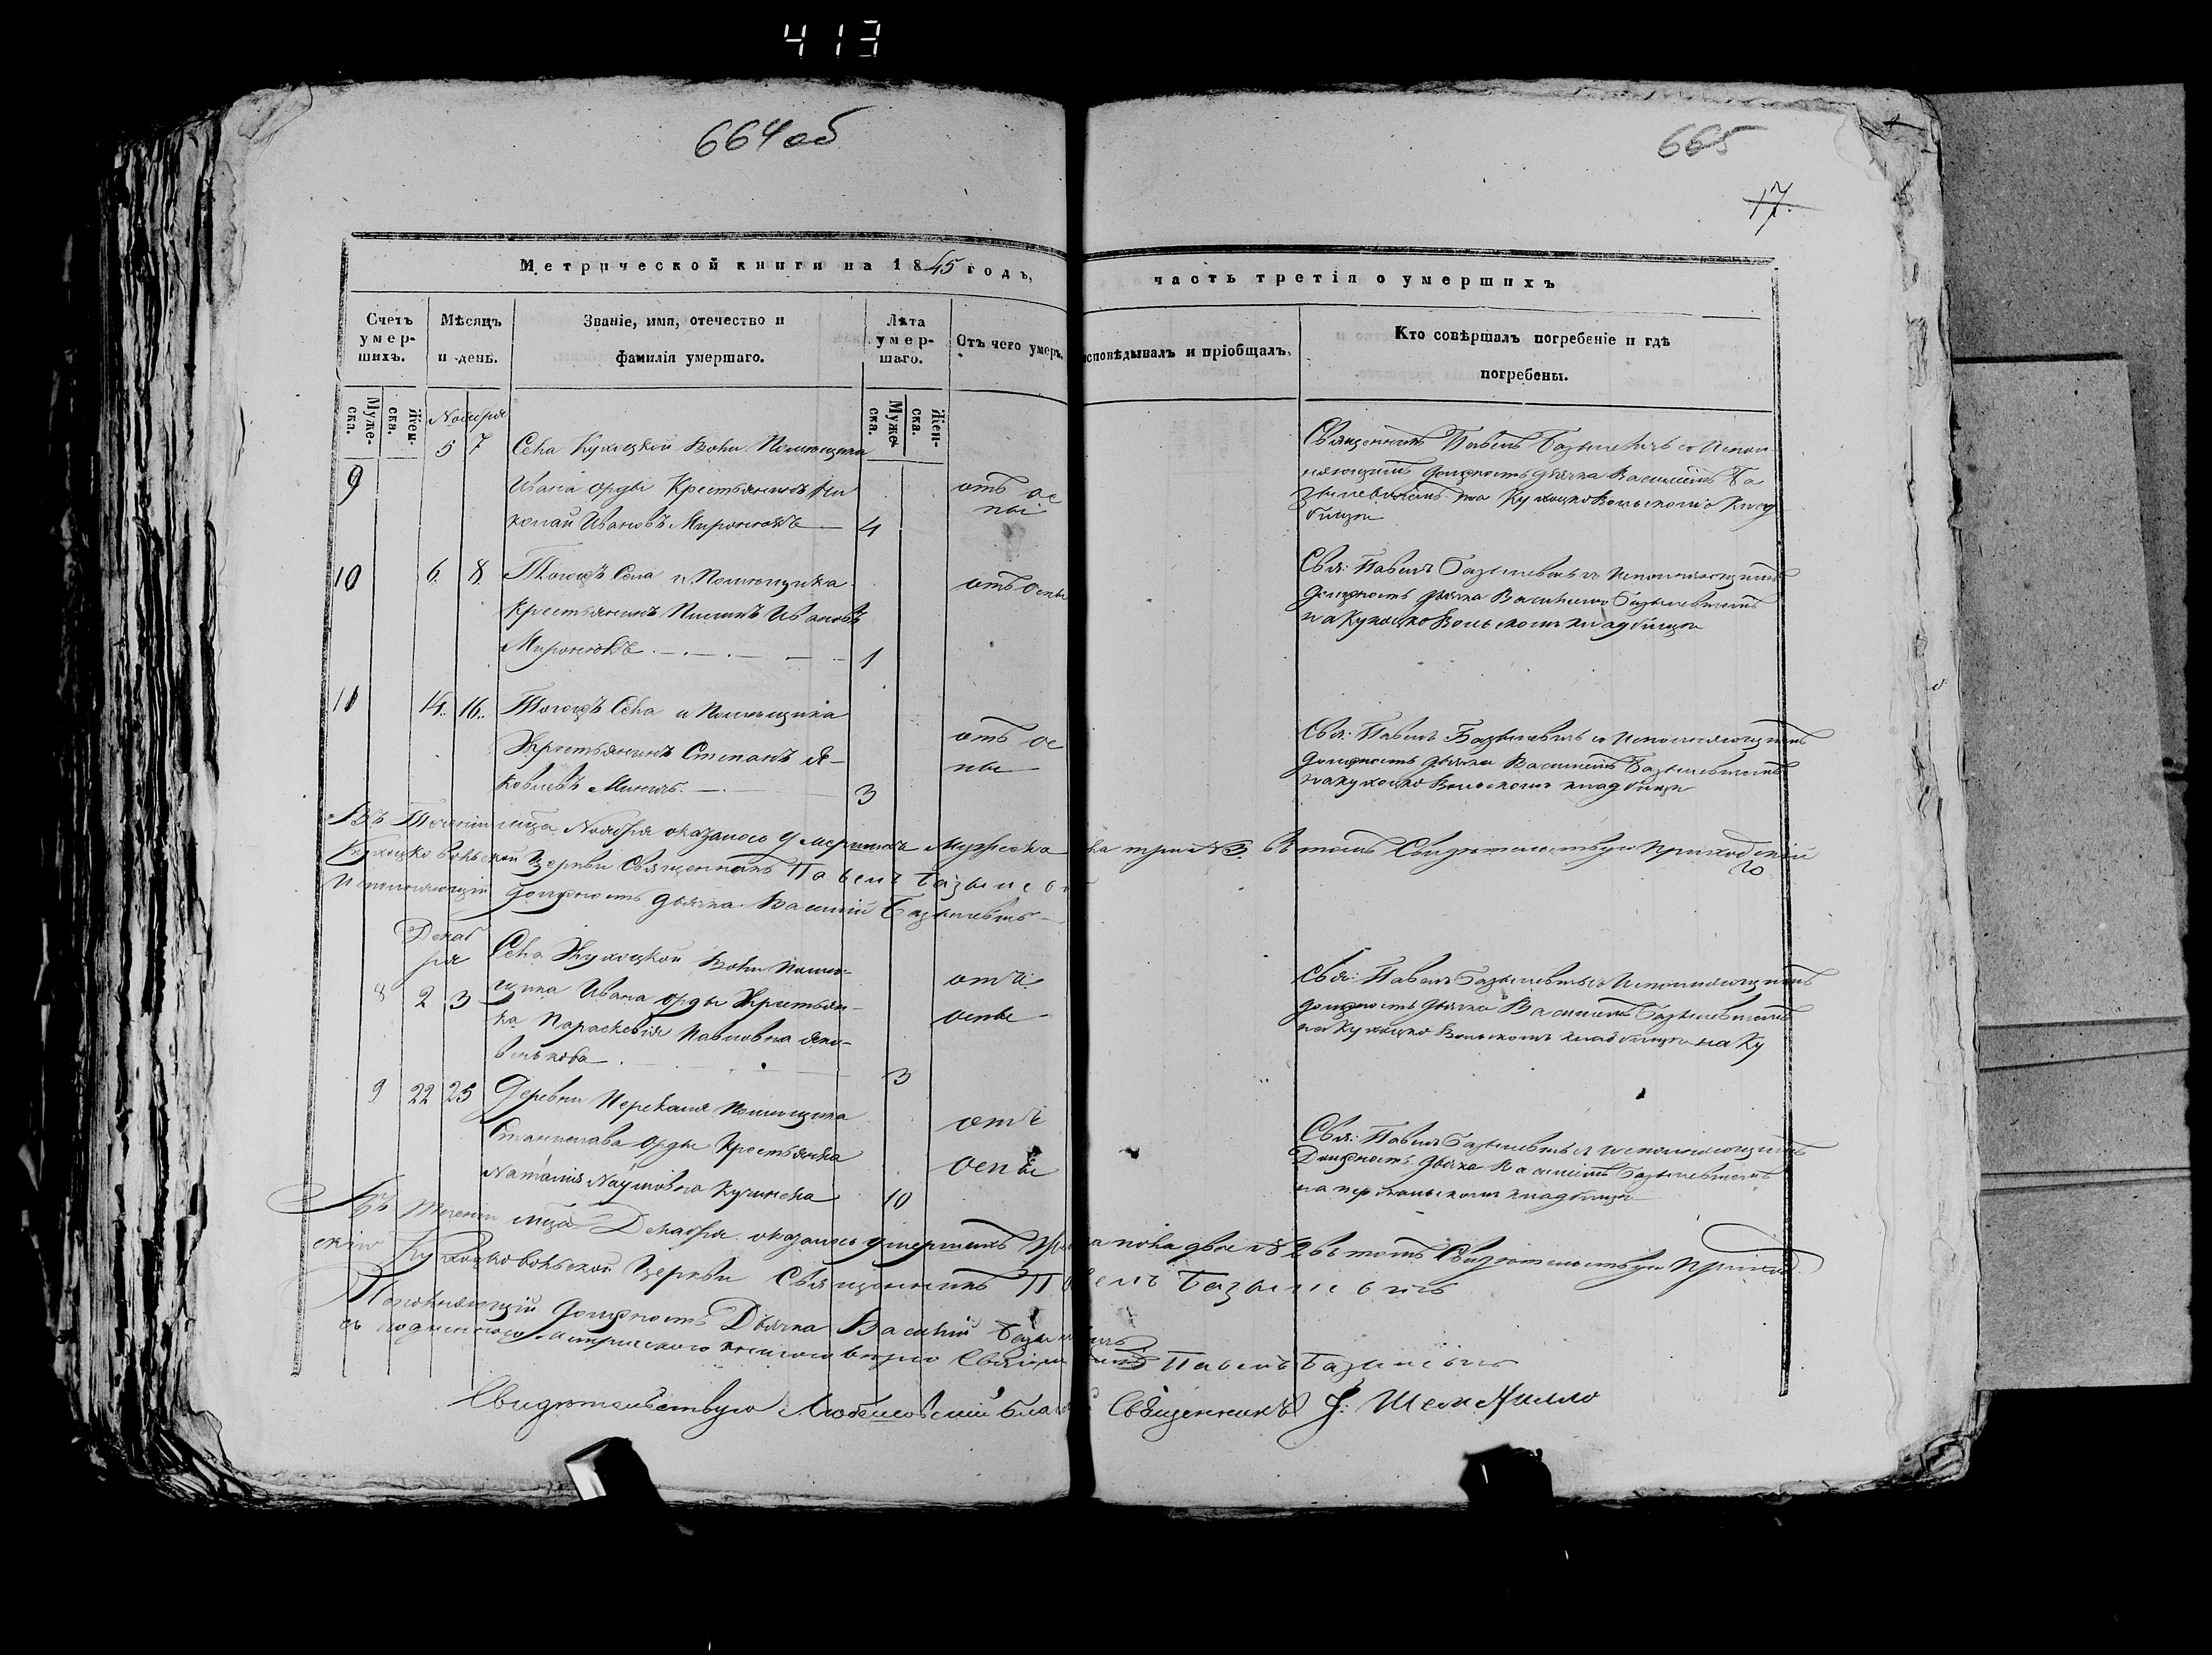 413
664об
665
17.
Метрической книги на 1845 годъ,
часть третія о умершихъ
Счетъ умер-шихъ.
Мѣсяцъ и день.
Званіе, имя, отечество и фамилія умершаго.
Лѣта умер-шаго.
Отъ чего умеръ.
исповѣдывалъ и пріобщалъ.
Кто совѣршалъ погребеніе и гдѣ погребены.
Муже-ска.
Жен-ска.
Муже-ска.
Жен-ска.
Ноября
9 5 7 Села Кухоцкой Воли Помещика
Ивана Орды Крестьянинъ Ни
колай Ивановъ Миронюкъ 4
отъ ос
пы
Священникъ Павелъ Базылевичъ со Испол
няющимъ должность дьячка Василіемъ Ба
зылевичемъ на Кухоцковольскомъ клад
бищи
10 6. 8. Тогожъ Села и Помещика
Крестьянинъ Ивановъ
Миронюкъ 1
отъ оспы
Свя: Павелъ Базылевичъ съ Исполняющимъ
должность дьячка Василіемъ Базылевичемъ
на Кухоцко Вольскомъ кладбищи
11 14. 16. Тогожъ Села и Помещика
Крестьянинъ Степанъ Я-
ковлевъ 3
отъ ос
пы
Свя: Павелъ Базылевичъ со Исполняющимъ
должность дьячка Василіемъ Базылевичемъ
на Кухоцко Вольскомъ кладбищи
Въ Теченіи мца Ноября оказалось умершихъ Мужеска
пола три №3. въ томъ Свидетельствую Приходскій
Кухоцко вольской Церкви Священникъ Павелъ Базылев
Исполняющій должность дьячка Василій Базылевичъ
Декаб
ря
8 2 3 Села Кухоцкой Воли Поме-
щика Ивана Орды Крестьян-
ка Параскевія Павловна Яко-
3
отъ
оспы
Свя: Павелъ Базылевичъ съ Исполняющимъ
должность дьячка Василіемъ Базылевичемъ
на Кухоцко Вольскомъ кладбищи на Ку
9 22 25 Деревни Перекаля Помещика
Станислава Орды Крестьянка
Наталія Наумовна 10
отъ
оспы
Свя: Павелъ Базылевичъ съ исполняющимъ
Должность дьячка Василіемъ Базылевичемъ
на перекальскомъ кладбищи
Въ течении мца Декабря оказалось умершихъ
пола двое №2 въ томъ Свидетельствую Приход
скій Кухоцковольской Церкви Священникъ Павелъ Базылевичъ
Исполняющій должность Дьячка Василій Базылевичъ
Священникъ Павелъ Базылевичъ
Свидетельствую Любешовскій Благоч Священникъ